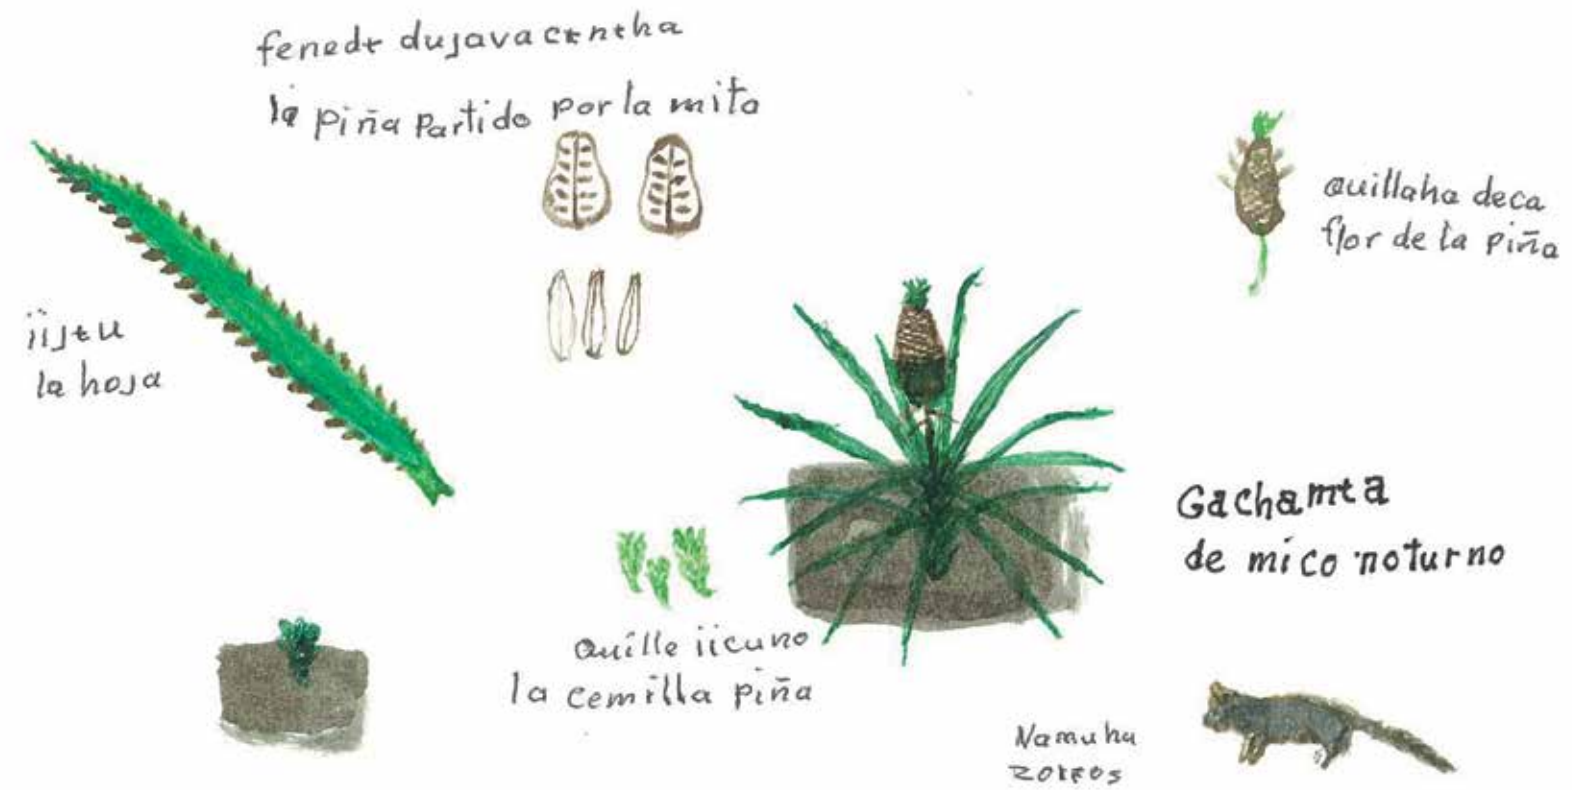 fenedɨ dujavacɨnɨha
la piña partido por la mito
auillaha deca
flor de la piña
iijɨu
la hoja
Gachamɨa
de mico noturno
auille iicuno
la cemilla piña
Namuha
zorros